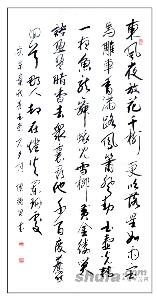 東風夜放花千樹更吹落星如雨寶
馬雕車香滿路鳳簫聲動玉壺光轉
一夜魚龍舞蛾兒雪柳黃金縷笑
語盈盈暗香去衆裏尋他千百度驀
回首那人却在燈火闌珊處
宋辛棄疾青玉案元夕